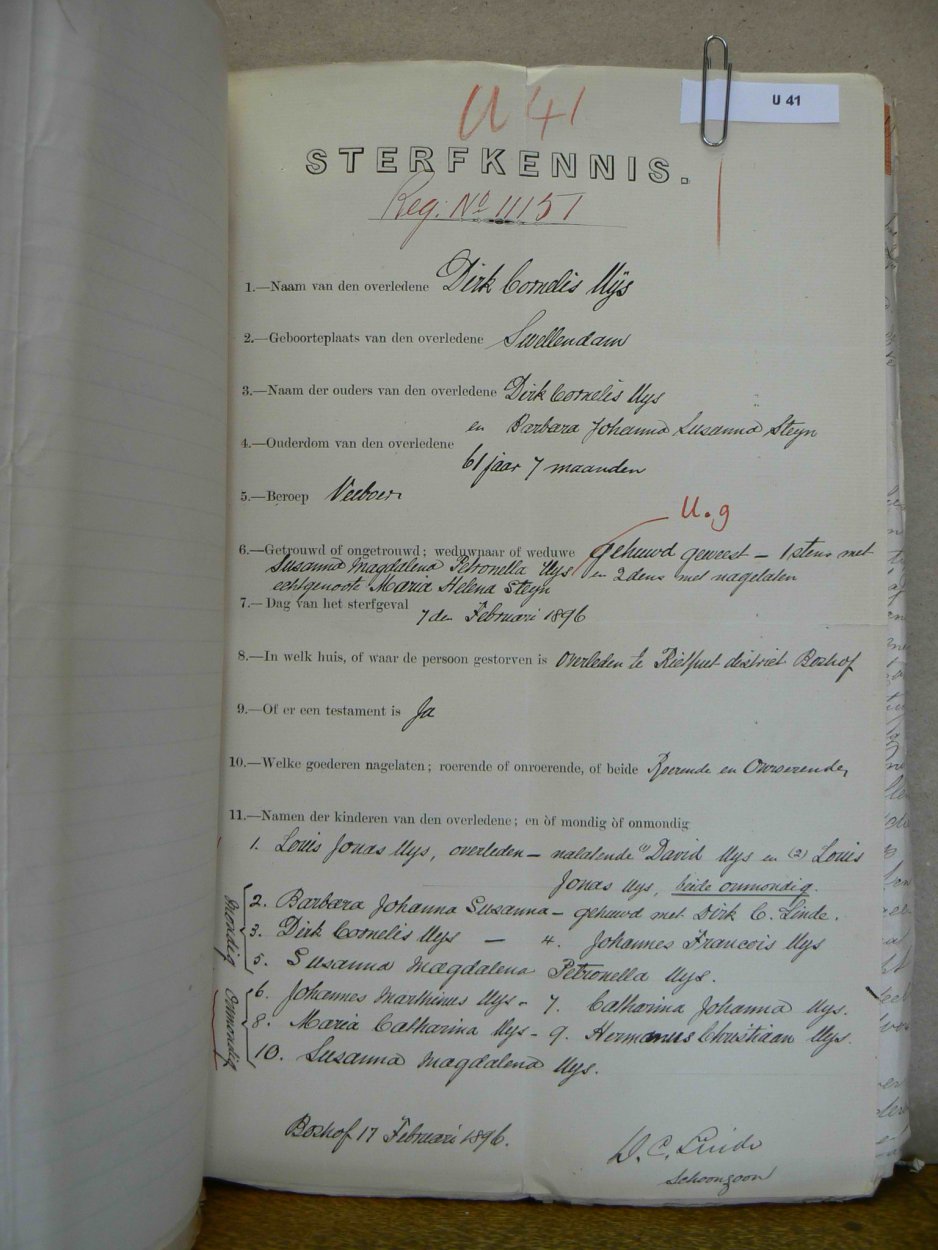 U 41
U 41
STERFKENNIS.
Reg: No 11151
1.—Naam van den overledene Dirk Cornelis Uijs
2.—Geboorteplaats van den overledene Swellendam
3.—Naam der ouders van den overledene Dirk Cornelis Uys
en Barbara Johanna Susanna Steyn
4.—Ouderdom van den overledene 61 jaar 7 maanden
5.—Beroep Veeboer
U.g
6.—Getrouwd of ongetrouwd; weduwnaar of weduwe gehuwd geweest — 1stens met
Susanna Magdalena Petronella Uys en 2dens met nagelaten
echtgenoote Maria Helena Steyn
7.—Dag van het sterfgeval 7den Februari 1896
8.—In welk huis, of waar de persoon gestorven is Overleden te Rietput district Boshof
9.—Of er een testament is Ja
10.—Welke goederen nagelaten; roerende of onroerende, of beide Roerende en Onroerende,
11.—Namen der kinderen van den overledene; en òf mondig òf onmondig
1. Louis Jonas Uys, overleden — nalatende (1) David Uys en (2) Louis
Jonas Uys, beide onmondig.
Mondig
2. Barbara Johanna Susanna — gehuwd met Dirk C. Linde.
3. Dirk Cornelis Uys — 4. Johannes Francois Uys
5. Susanna Magdalena Petronella Uys.
Onmondig
6. Johannes Marthinus Uys - 7. Catharina Johanna Uys.
8. Maria Catharina Uys - 9. Hermanus Christiaan Uys.
10. Susanna Magdalena Uys.
Boshof 17 Februari 1896.
D. C. Linde
Schoonzoon